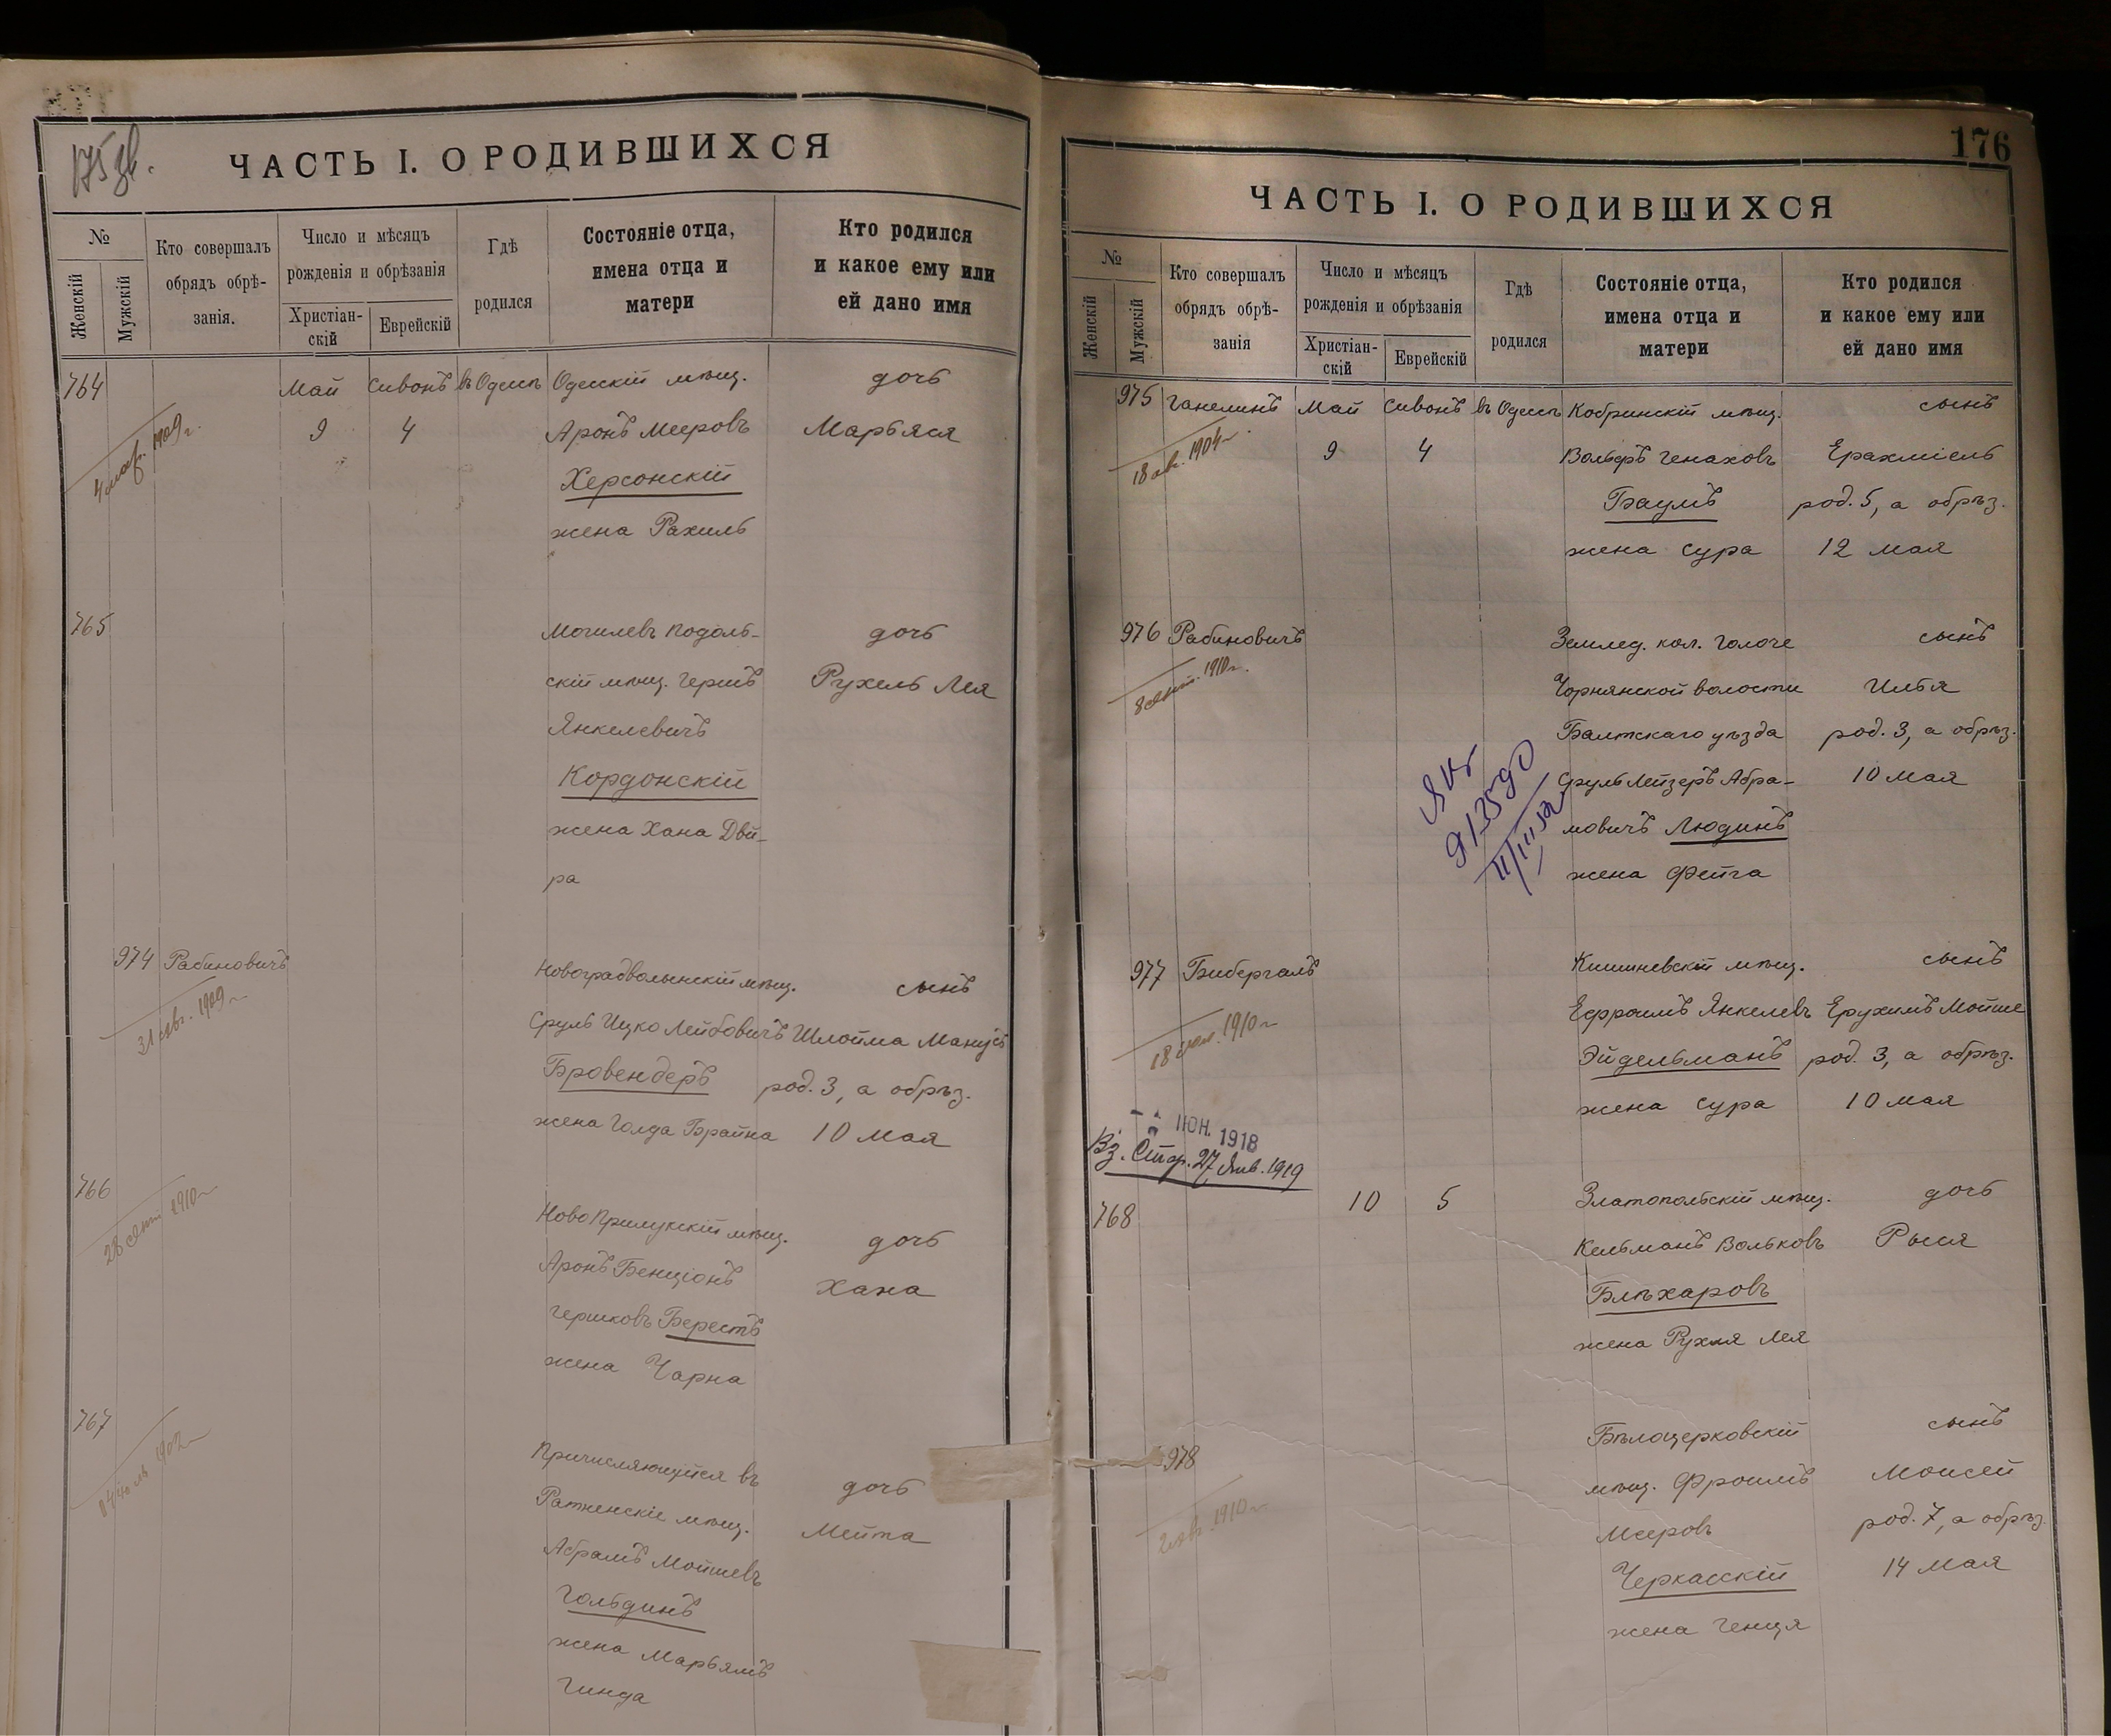 175 зв.
ЧАСТЬ I. О РОДИВШИХСЯ
№
Женскій
Мужскій
Кто совершалъ
обрядъ обрѣ-
занія.
Число и мѣсяцъ
рожденія и обрѣзанія
Христіан-
скій
Еврейскій
Гдѣ
родился
Состояніе отца,
имена отца и
матери
Кто родился
и какое ему или
ей дано имя
764 Май Сивонъ въ Одессѣ Одесскій мѣщ. дочь
9 4 Аронъ Мееровъ Марьяся
1909 г.
Херсонскій
жена Рахиль
765 Могилевъ Подоль-
дочь
скій мѣщ. Гершъ Рухель Лея
Янкелевичъ
Кордонскій
жена Хана Двй-
ра
974 Рабиновичъ Новоградволынскій мѣщ. сынъ
31 авг. 1909 г.
Сруль Ицко Лейбовичъ Шлойма Манусъ
Бровендеръ род. 3, а обрѣз.
жена Голда Брайна 10 мая
766 Ново Прилукскій мѣщ. дочь
28 1910 г.
Аронъ Бенціонъ Хана
Гершковъ Берестъ
жена Чарна
767 Причисляющійся въ дочь
Ратненскіе мѣщ. Мейта
Абрамъ Мошевъ
Гольдинъ
жена Марьямъ
Гинда
176
ЧАСТЬ I. О РОДИВШИХСЯ
№
Женскій
Мужскій
Кто совершалъ
обрядъ обрѣ-
занія
Число и мѣсяцъ
рожденія и обрѣзанія
Христіан-
скій
Еврейскій
Гдѣ
родился
Состояніе отца,
имена отца и
матери
Кто родился
и какое ему или
ей дано имя
975 Ганелинъ Май Сивонъ въ Одессѣ Кобринскій мѣщ. сынъ
18 1904 г.
9 4 Вольфъ Генаховъ Ерахміель
Баумъ род. 5, а обрѣз.
жена Сура 12 мая
976 Рабиновичъ Землед. кол. Голоче сынъ
8 1910 г.
Чорнянской волости Илья
Балтскаго уѣзда род. 3, а обрѣз.
Сруль Лейзеръ Абра- 10 мая
мовичъ Людинъ
жена Фейга
977 Бибергалъ Кишиневскій мѣщ. сынъ
18 1910 г.
Ефроимъ Янкелевъ Ерухимъ Мойше
Эйдельманъ род. 3, а обрѣз.
жена Сура 10 мая
ІЮН. 1918
Вз. Стар. 27 Янв. 1919
768 10 5 Златопольскій мѣщ. дочь
Кельманъ Вольковъ Рыся
Блѣхаровъ
жена Рухля Лея
978 Бѣлоцерковскій сынъ
1910 г.
мѣщ. Фроимъ Моисей
Меровъ род. 7, а обрѣз.
Черкасскій 14 мая
жена Генця